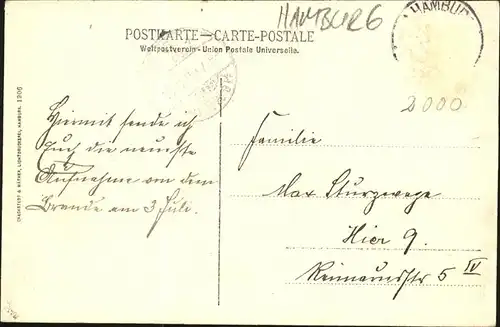 HAMBURG
HAMBUR
POSTKARTE — CARTE-POSTALE
Weltpostverein - Union Postale Universelle.
2000
KNACKSTEDT & NÄTHER, LICHTDRUCKEREI, HAMBURG. 1906
Hiermit sende ich
Euch die neueste
Aufnahme von dem
Brande am 3 Juli.
Familie
Max Sturzwege
Hier 9.
Reimarusstr 5 IV